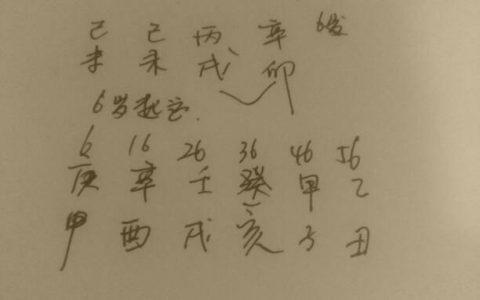 己 己 丙 辛 6岁
未 未 戌 卯
6岁起运.
6 16 26 36 46 56
庚 辛 壬 癸 甲 乙
申 酉 戌 亥 子 丑